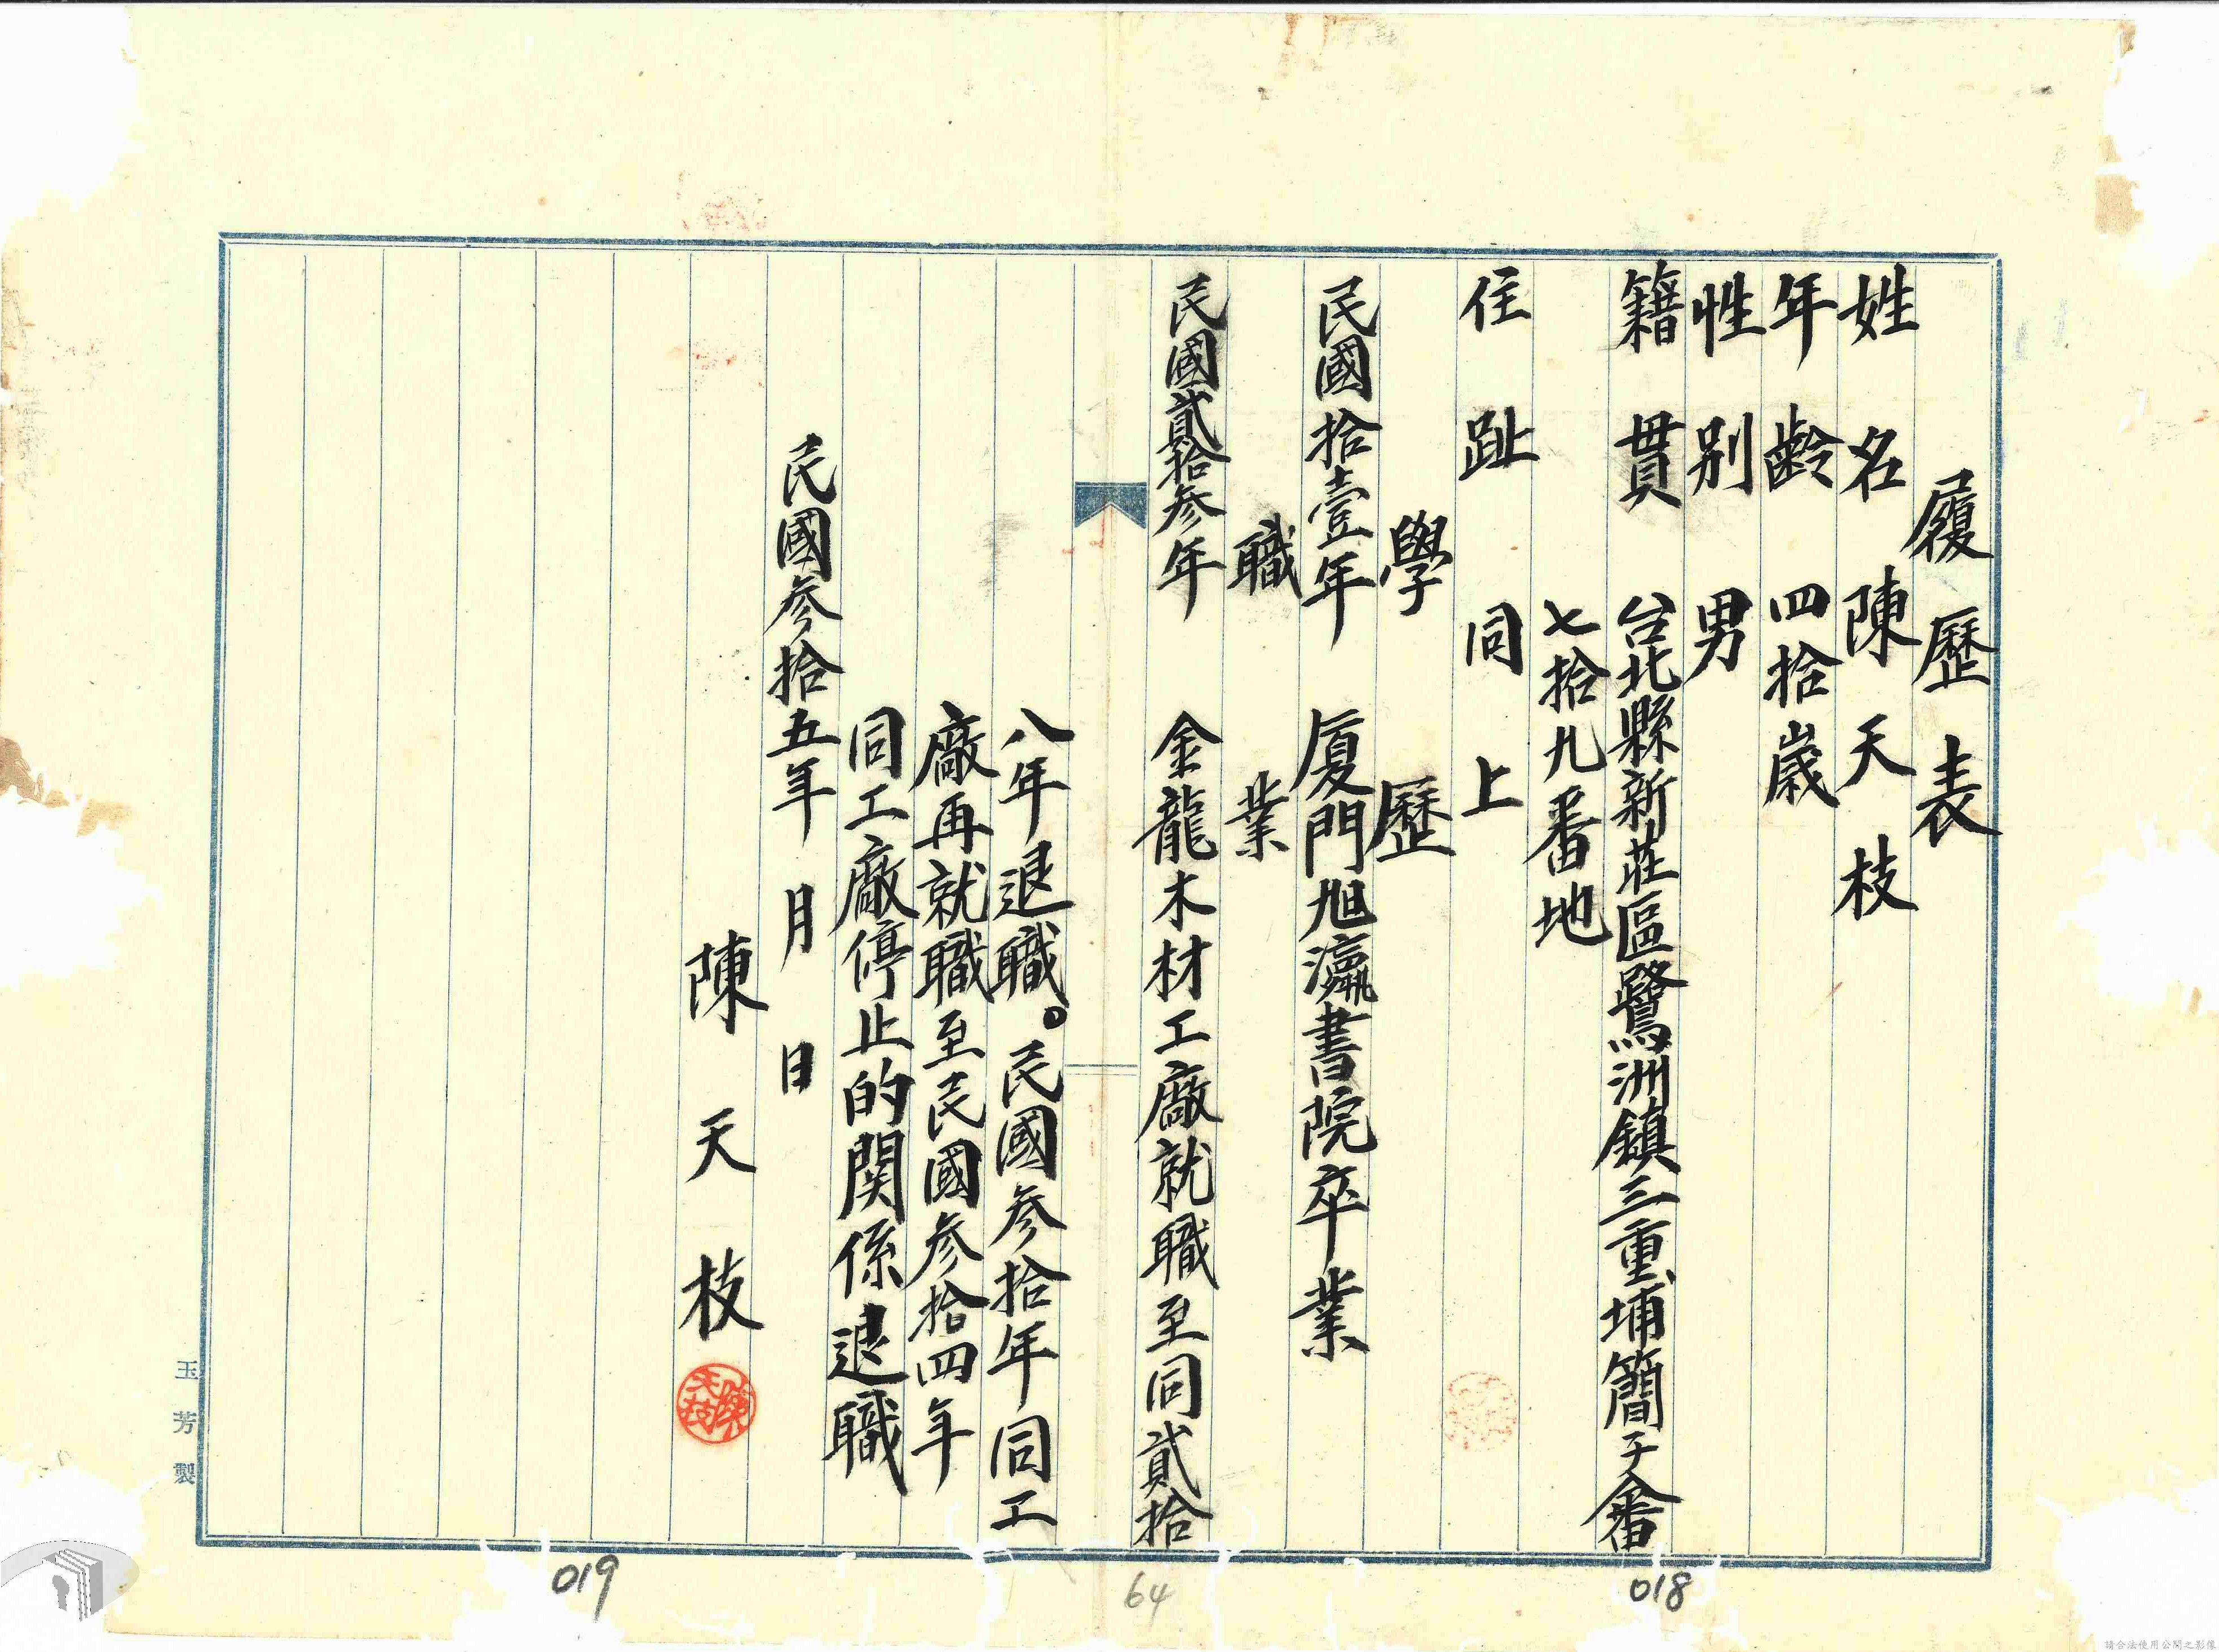 履歷表
姓名 陳天枝
年齡 四拾歲
性別 男
籍貫 台北縣新莊區鷺洲鎮三重埔簡子畬
七拾九番地
住趾 同上
學歷
民國拾壹年 厦門旭瀛書院卒業
職業
民國貳拾参年 金龍木材工廠就職至同貳拾
八年退職。民國参拾年同工
廠再就職至民國参拾四年
同工廠停止的関係退職
民國参拾五年 月 日
陳天枝
陳天枝
玉芳製
018
64
019
請合法使用公開之影像